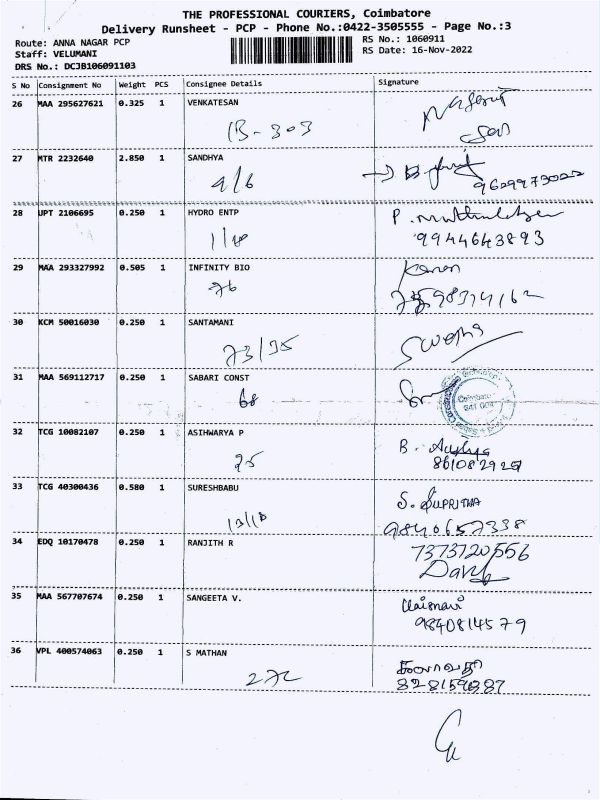 THE PROFESSIONAL COURIERS, Coimbatore
Delivery Runsheet - PCP - Phone No.:0422-3505555 - Page No.:3
Route: ANNA NAGAR PCP
Staff: VELUMANI
DRS No.: DCJB106091103
RS No.: 1060911
RS Date: 16-Nov-2022
S No Consignment No Weight PCS Consignee Details Signature
26 MAA 295627621 0.325 1 VENKATESAN
1B-303
27 MTR 2232640 2.850 1 SANDHYA
9/6
9629973022
28 JPT 2106695 0.250 1 HYDRO ENTP
9944643893
29 MAA 293327992 0.505 1 INFINITY BIO
76
30 KCM 50016030 0.250 1 SANTAMANI
73/35
31 MAA 569112717 0.250 1 SABARI CONST
68
Coimbatore
32 TCG 10082107 0.250 1 ASIHWARYA P
B.
25
33 TCG 40300436 0.580 1 SURESHBABU
S. SUPRITHA
13/18
9840657338
34 EDQ 10170478 0.250 1 RANJITH R
7373720556
35 MAA 567707674 0.250 1 SANGEETA V.
9840814579
36 VPL 400574063 0.250 1 S MATHAN
கலாவதி
272